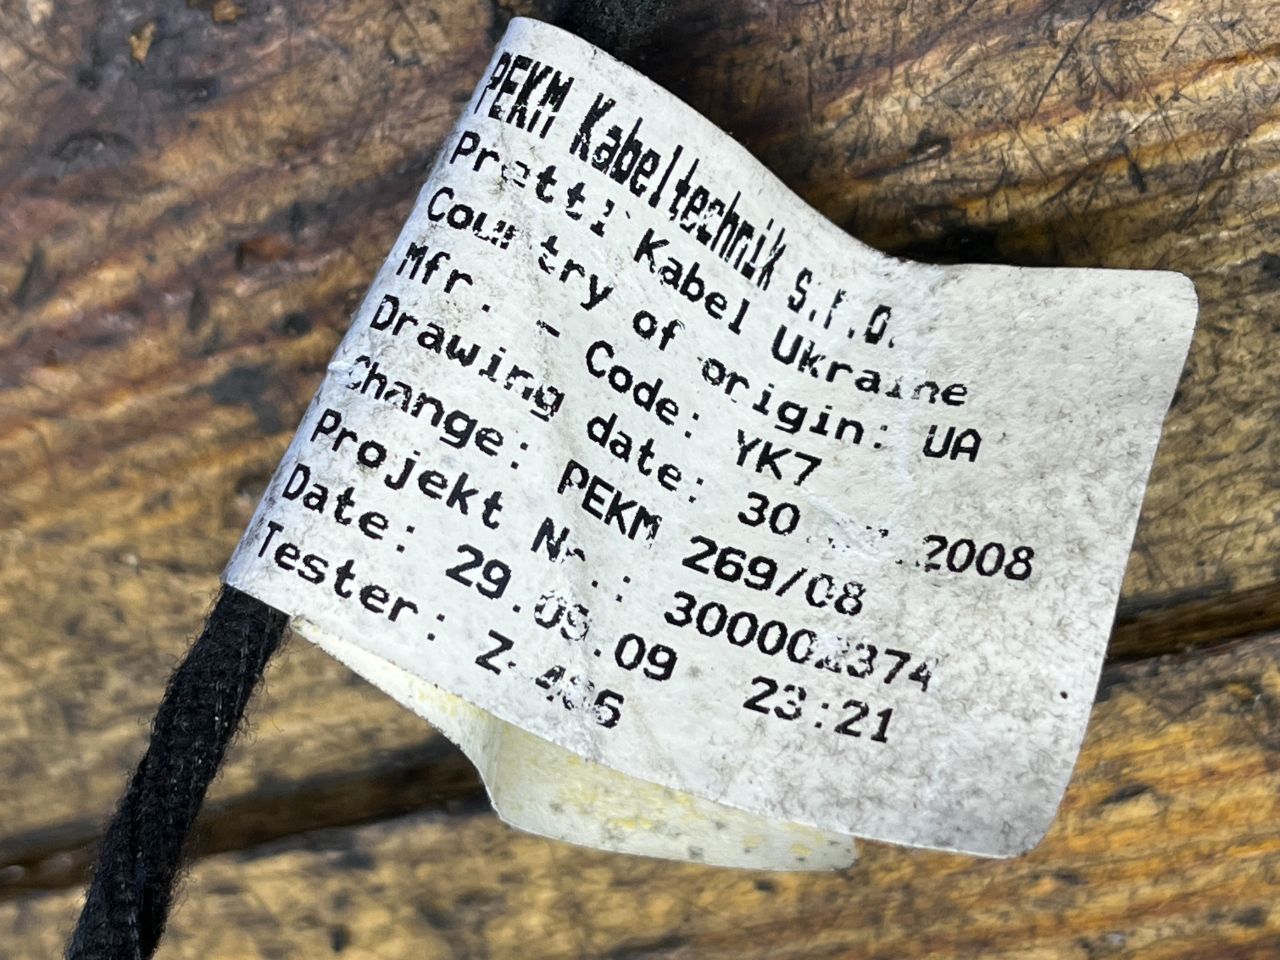 PEKM Kabeltechnik s.r.o.
Prettl Kabel Ukraine
Country of origin: UA
Mfr. - Code: YK7
Drawing date: 30
Change: PEKM 269/08
Projekt Nr.:
Date: 29.09.09 23:21
Tester: